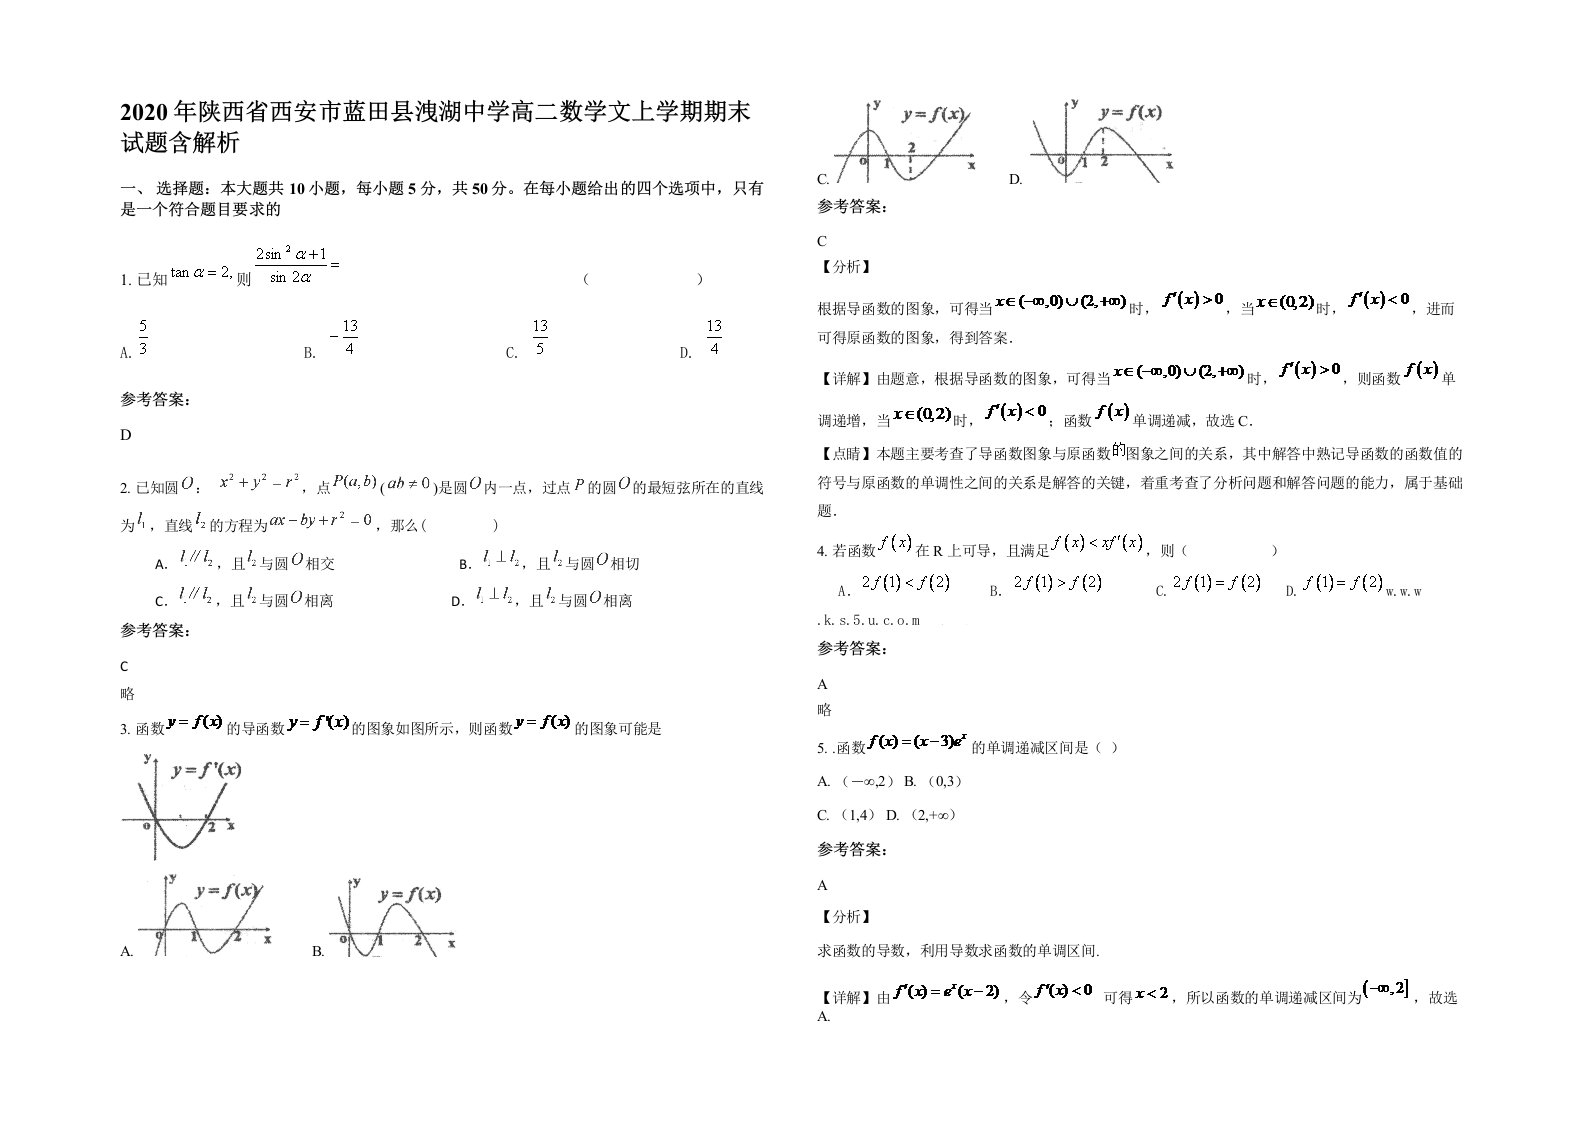 2020 年陕西省西安市蓝田县洩湖中学高二数学文上学期期末
试题含解析
一、 选择题：本大题共 10 小题，每小题 5 分，共 50 分。在每小题给出的四个选项中，只有
是一个符合题目要求的
1. 已知 tan α = 2, 则 (2sin² α+1)/(sin 2α) = （ ）
A. 5/3 B. −13/4 C. 13/5 D. 13/4
参考答案：
D
2. 已知圆 O： x² + y² = r²，点 P(a, b) ( ab ≠ 0 )是圆 O 内一点，过点 P 的圆 O 的最短弦所在的直线
为 l₁，直线 l₂ 的方程为 ax − by + r² = 0，那么( )
A. l∥l₂，且 l₂ 与圆 O 相交 B. l⊥l₂，且 l₂ 与圆 O 相切
C. l∥l₂，且 l₂ 与圆 O 相离 D. l⊥l₂，且 l₂ 与圆 O 相离
参考答案：
C
略
3. 函数 y = f(x) 的导函数 y = f'(x) 的图象如图所示，则函数 y = f(x) 的图象可能是
y y = f'(x)
o 2 x
A. y y = f(x) o 1 2 x B. y y = f(x) o 1 2 x
C. y y = f(x) 2 o 1 x D. y y = f(x) o 1 2 x
参考答案：
C
【分析】
根据导函数的图象，可得当 x∈(−∞,0)∪(2,+∞) 时， f′(x)>0，当 x∈(0,2) 时， f′(x)<0，进而
可得原函数的图象，得到答案.
【详解】由题意，根据导函数的图象，可得当 x∈(−∞,0)∪(2,+∞) 时， f′(x)>0，则函数 f(x) 单
调递增，当 x∈(0,2) 时， f′(x)<0；函数 f(x) 单调递减，故选 C.
【点睛】本题主要考查了导函数图象与原函数的图象之间的关系，其中解答中熟记导函数的函数值的
符号与原函数的单调性之间的关系是解答的关键，着重考查了分析问题和解答问题的能力，属于基础
题.
4. 若函数 f(x) 在 R 上可导，且满足 f(x) < xf′(x)，则（ ）
A. 2f(1) < f(2) B. 2f(1) > f(2) C. 2f(1) = f(2) D. f(1) = f(2) w.w.w
.k.s.5.u.c.o.m
参考答案：
A
略
5. .函数 f(x) = (x−3)eˣ 的单调递减区间是（ ）
A. （－∞,2） B. （0,3）
C. （1,4） D. （2,+∞）
参考答案：
A
【分析】
求函数的导数，利用导数求函数的单调区间.
【详解】由 f′(x) = eˣ(x−2)，令 f′(x)<0 可得 x<2，所以函数的单调递减区间为 (−∞,2]，故选
A.